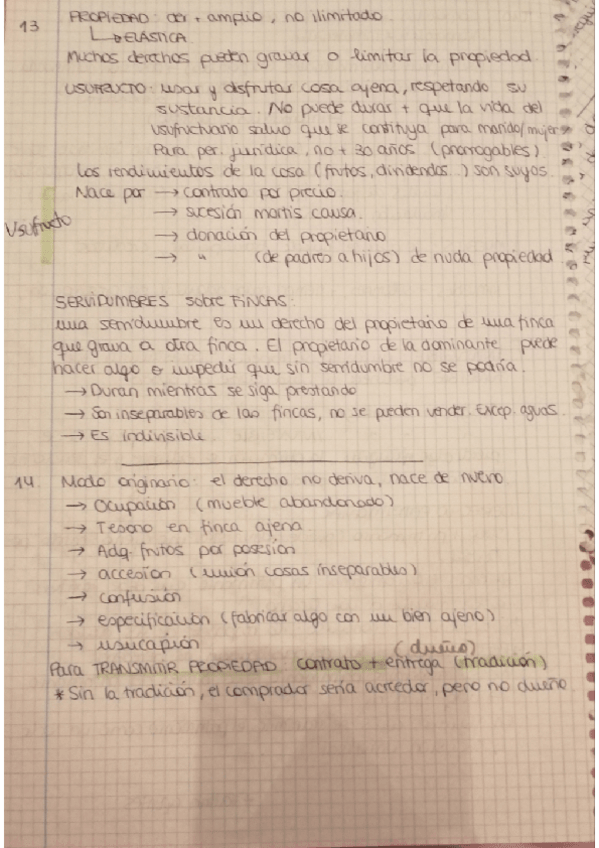 13 PROPIEDAD: dcr + amplio, no ilimitado.
→ ELÁSTICA
Muchos derechos pueden gravar o limitar la propiedad.
USUFRUCTO: usar y disfrutar cosa ajena, respetando su
sustancia. No puede durar + que la vida del
usufructuario salvo que se constituya para marido/mujer
Para per. jurídica, no + 30 años (prorrogables)
Los rendimientos de la cosa (frutos, dividendos..) son suyos.
Nace por → contrato por precio.
Usufructo
→ sucesión mortis causa.
→ donación del propietario
→ " (de padres a hijos) de nuda propiedad
SERVIDUMBRES sobre FINCAS:
una servidumbre es un derecho del propietario de una finca
que grava a otra finca. El propietario de la dominante puede
hacer algo o impedir que, sin servidumbre no se podría.
→ Duran mientras se siga prestando
→ Son inseparables de las fincas, no se pueden vender. Excep. aguas.
→ Es indivisible.
14. Modo originario: el derecho no deriva, nace de nuevo
→ Ocupación (mueble abandonado)
→ Tesoro en finca ajena
→ Adq. frutos por posesión
→ accesión (unión cosas inseparables)
→ confusión
→ especificación (fabricar algo con un bien ajeno)
→ usucapión (dueño)
Para TRANSMITIR PROPIEDAD contrato + entrega (tradición)
* Sin la tradición, el comprador sería acreedor, pero no dueño